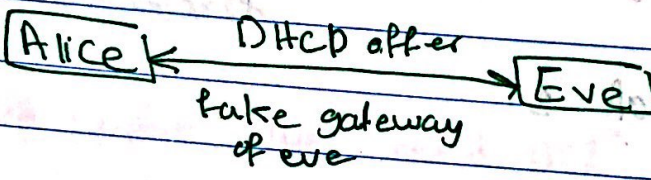 Alice
DHCP offer
Eve
fake gateway
of eve